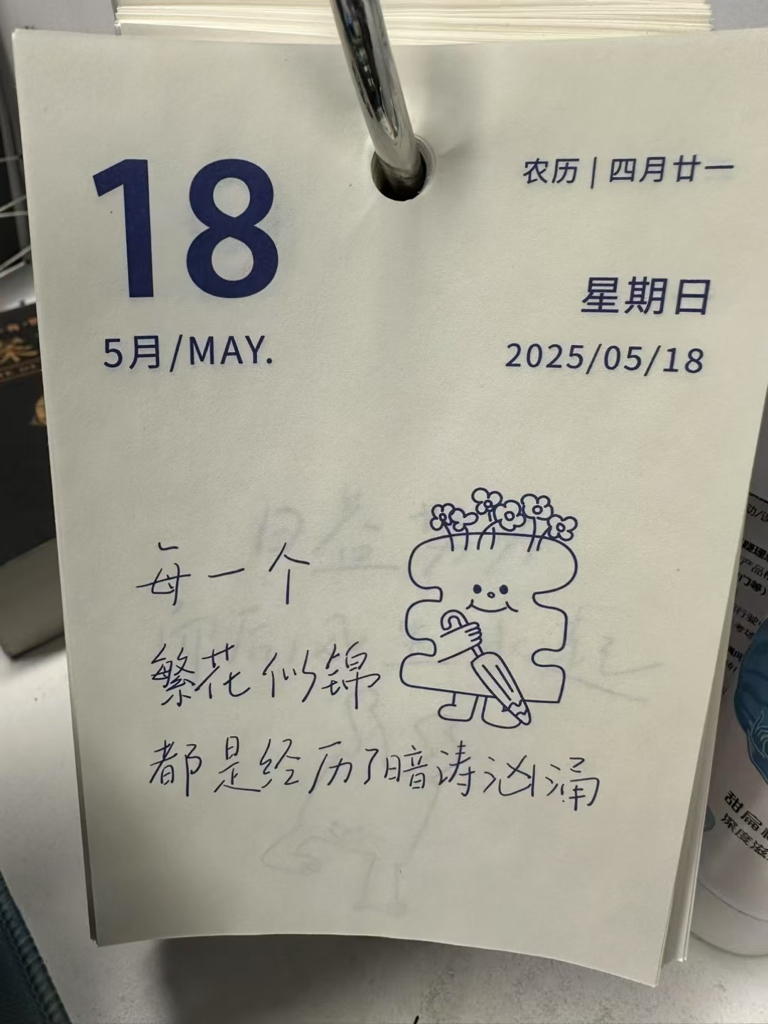 18
5月/MAY.
农历 | 四月廿一
星期日
2025/05/18
每一个
繁花似锦
都是经历了暗涛汹涌
甜扁
深度滋